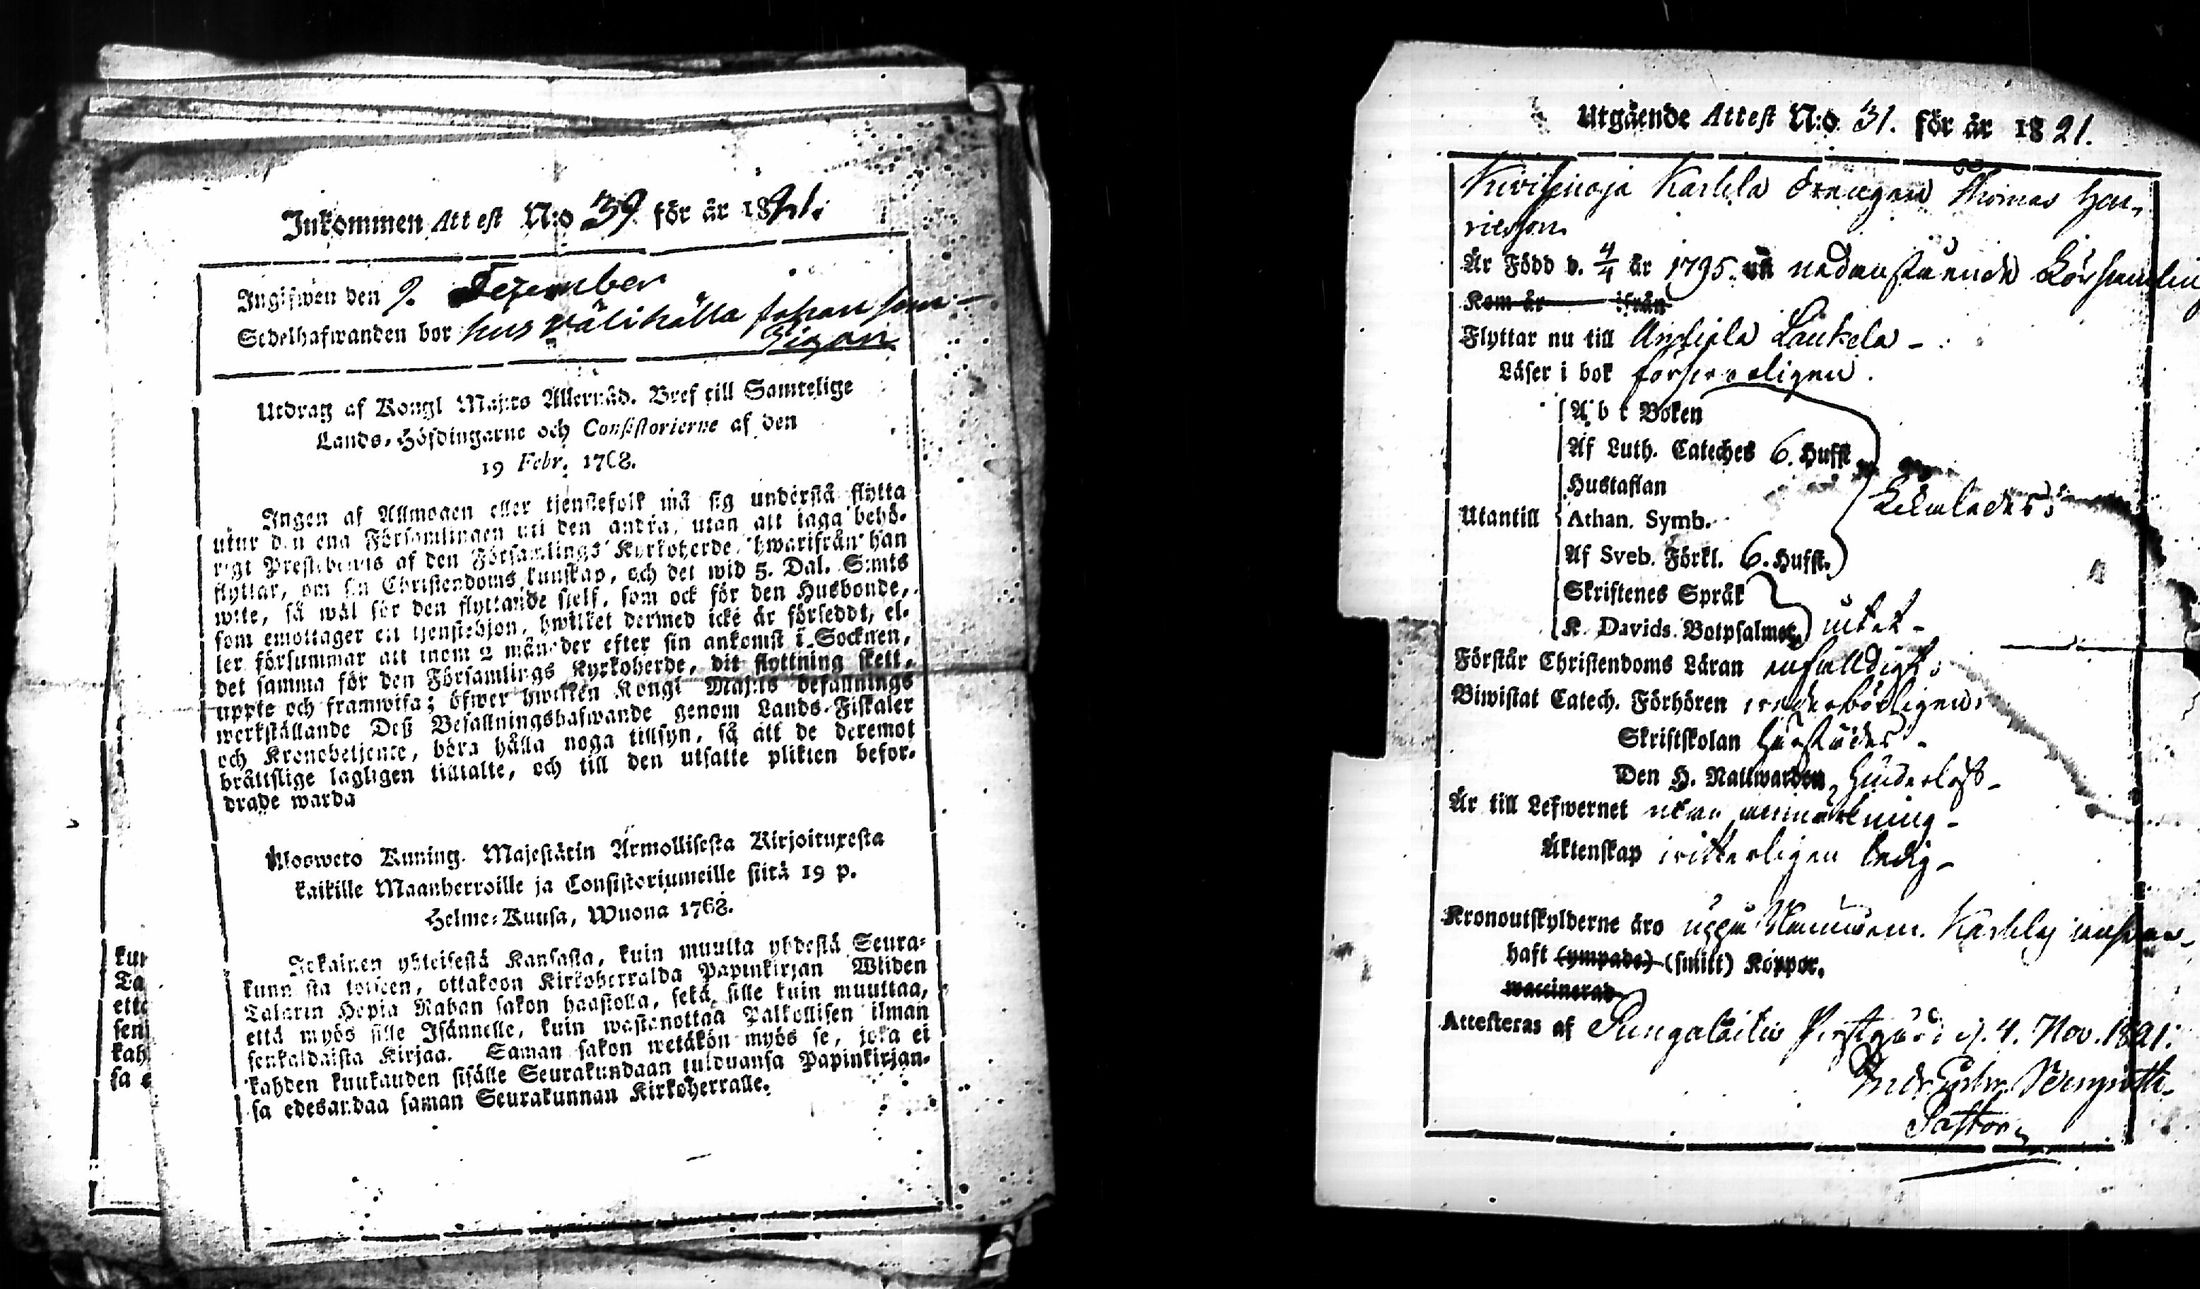 Inkommen Attest N:o 39 för år 1821.
Ingifwen den 9. Dezember
Sedelhafwanden bor hos Wälikälla Johan som
Utdrag af Kongl Maj:ts Allernåd. Bref till Samtelige
Lands-Höfdingarne och Consistorierne af den
19 Febr. 1768.
Ingen af Allmogen eller tjenstefolk må sig understå flytta
utur den ena Församlingen uti den andra, utan att taga behö-
rigt Prestebewis af den Församlings Kyrkoherde, hwarifrån han
flyttar, om sin Christendoms kunskap, och det wid 5. Dal. S:mts
wite, så wäl för den flyttande sjelf, som ock för den Husbonde,
som emottager ett tjenstehjon, hwilket dermed icke är försedt, el-
ler försummar att inom 2 månader efter sin ankomst i Socknen,
det samma för den Församlings Kyrkoherde, dit flyttning skett,
uppte och framwisa; öfwer hwilken Kongl Maj:ts befallnings
werkställande Deß Befallningshafwande genom Lands-Fiskaler
och Kronobetjente, böra hålla noga tillsyn, så att de deremot
bråttslige lagligen tilltalte, och till den utsatte plikten befor-
drade warda
Ulosweto Kuning. Majestätin Armollisesta Kirjoituxesta
kaikille Maanherroille ja Consistoriumeille siitä 19 p.
Helme-Kuusa, Wuona 1768.
Jokainen yhteisestä Kansasta, kuin muutta yhdestä Seura-
kunnasta toiseen, ottakoon Kirkoherralda Papinkirjan Wiiden
Talarin Hopia Rahan sakon haastolla, sekä sille kuin muuttaa,
että myös sille Isännelle, kuin wastanottaa Palkollisen ilman
senkaldaista Kirjaa. Saman sakon wetäkön myös se, joka ei
kahden kuukauden sisälle Seurakundaan tulduansa Papinkirjan-
sa edesandaa saman Seurakunnan Kirkoherralle.
kun
Ta
että
sen
kah
sa e
Utgående Attest N:o 31. för år 1821.
Karhila Drengen Thomas Hen-
ricsson
Är Född d. 4/4 år 1795. nedanstående Församling
Kom är ifrån
Flyttar nu till Laukela
Läser i bok försvarligen.
A b c Boken
Af Luth. Cateches 6. Hufst
Hustaflan
Utantill Athan. Symb.
Af Sveb. Förkl. 6. Hufst.
Skriftenes Språk
K. Davids. Botpsalmer intet
Förstår Christendoms Läran enfaldigt
Biwistat Catech. Förhören wederbörligen
Skriftskolan härstädes
Den H. Nattwarden hinderlöst
Är till Lefwernet utan anmärkning
Äktenskap witterligen ledig
Kronoutskylderne äro
haft (ympade) (smitt) Koppor.
waccinerad
Attesteras af Pungalaitio Prestgård d. 4. Nov. 1821.
Pastor